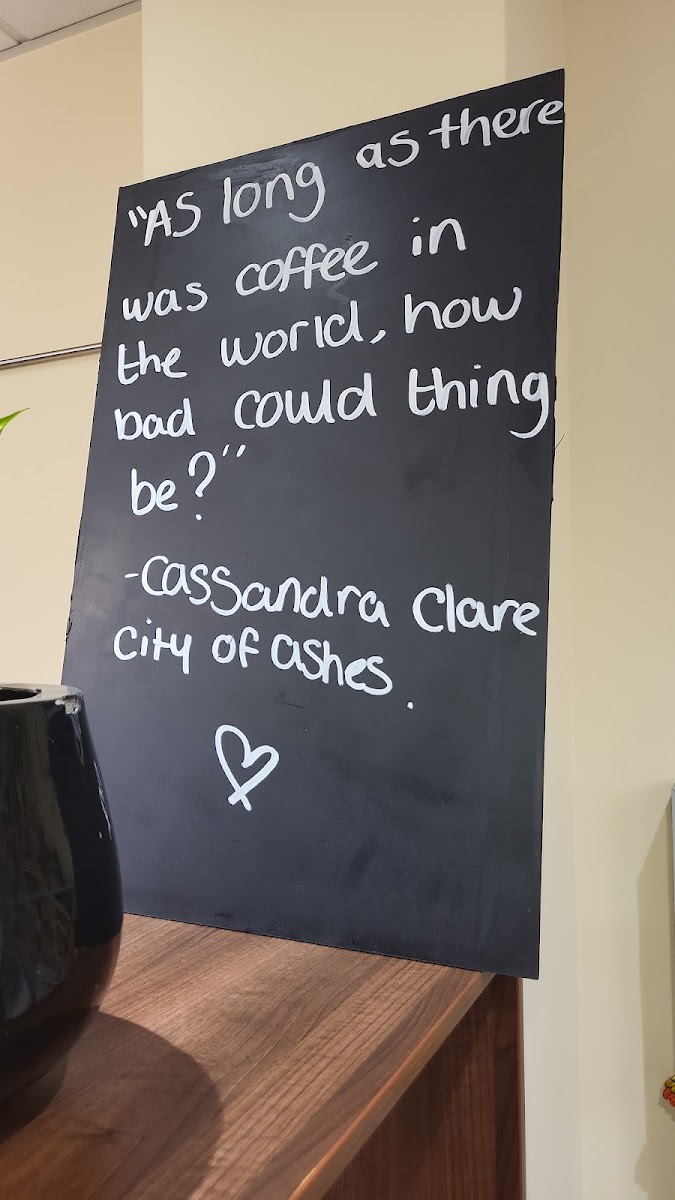 "As long as there
was coffee in
the world, how
bad could thing
be?"
-Cassandra Clare
City of ashes.